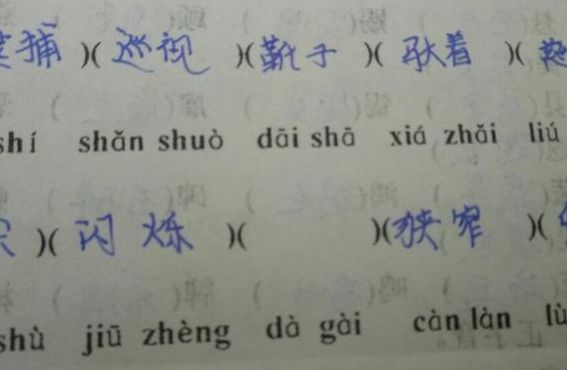 捕 )( 巡视 )( 靴子 )( 着 )(
shí shǎn shuò dāi shā xiá zhǎi liú
)( 闪烁 )( )( 狭窄 )(
shù jiū zhèng dà gài càn làn lù